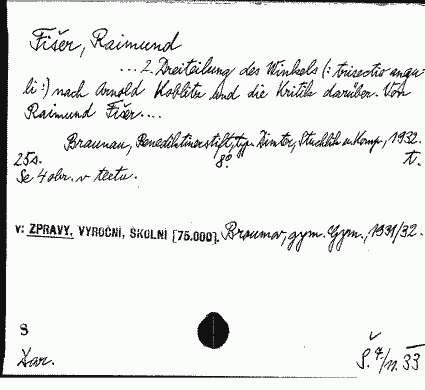 Fišer, Raimund
... 2. Dreiteilung des Winkels (: trisectio angu-
li :) nach Arnold Koblitz und die Kritik darüber. Von
Raimund Fišer....
Braunau, Benediktinerstift, typ. Dimter, Stuchlik u. Komp., 1932.
25 s. 8° t.
Se 4 obr. v textu.
v: ZPRÁVY, VÝROČNÍ, ŠKOLNÍ [75.000]. Broumov, gym. Gym., 1931/32.
8
Dar. Š. 4/11. 33